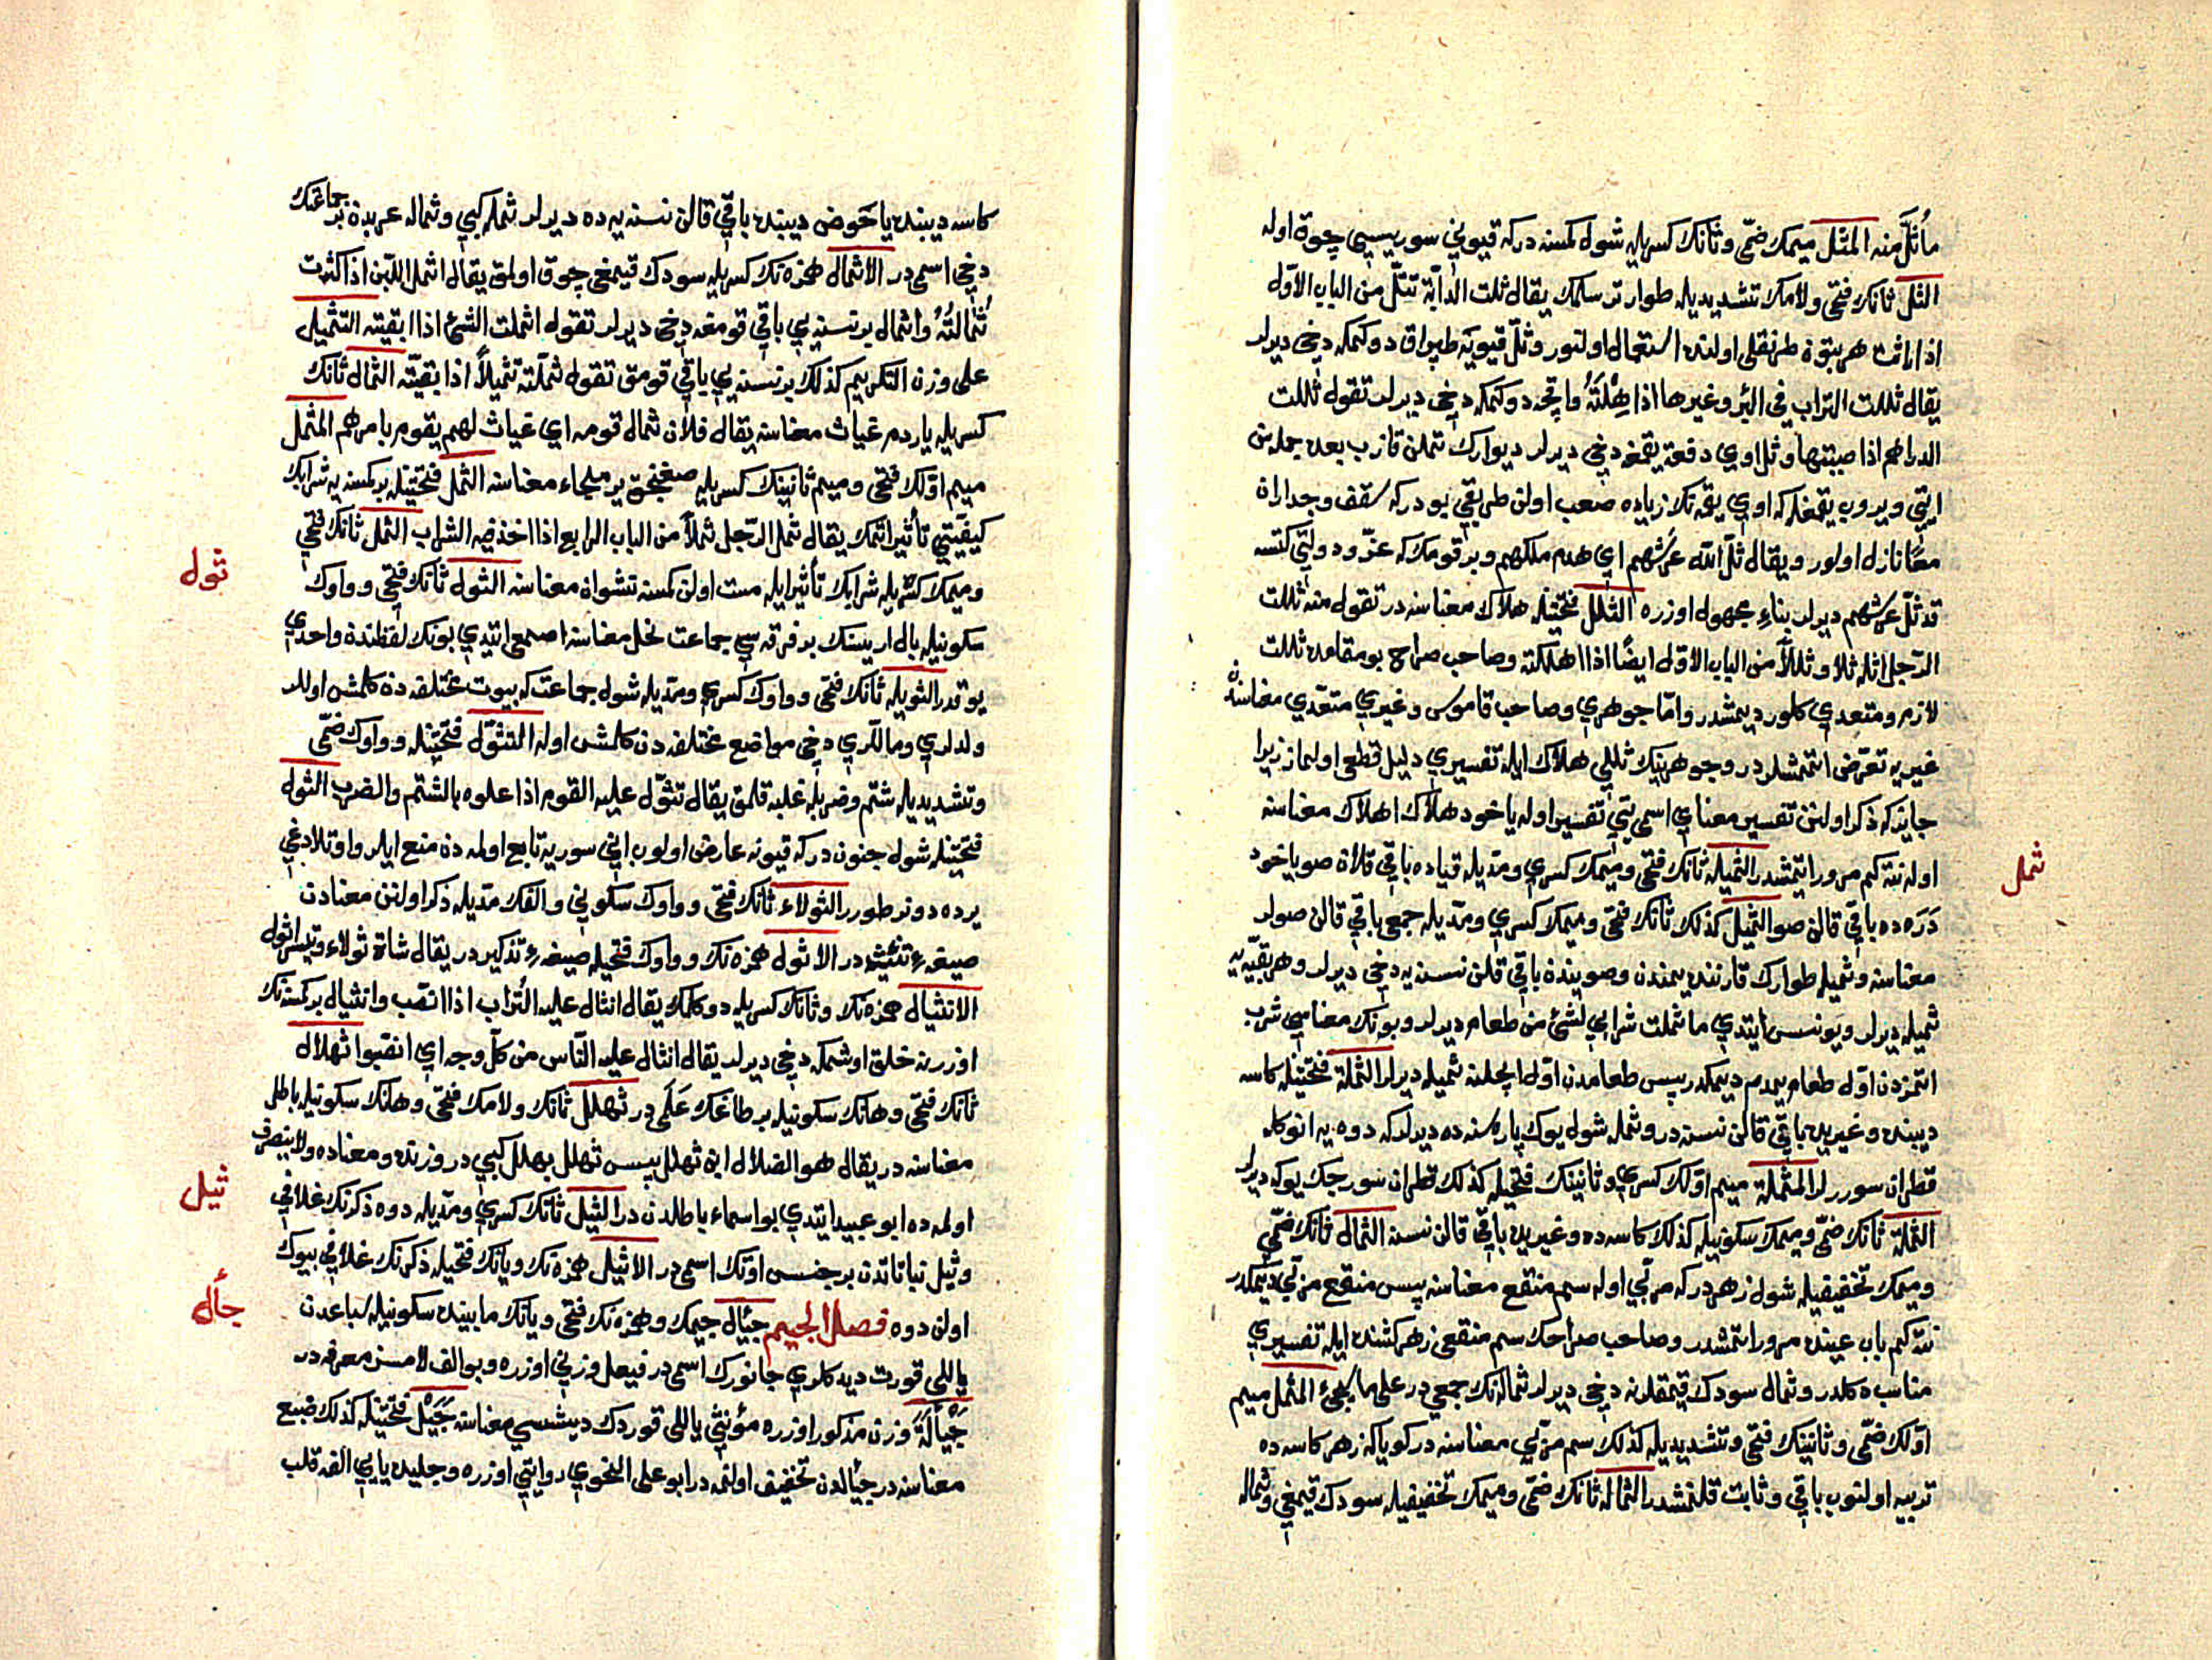 مأثلّ منه المثلل ميمك ضمّى وثانك كسريله شول كمسنه دركه قيونى سوريسى چوق اوله
الثلل ثانك فتحى ولامك تشديديله طوار ترسلمك يقال ثلت الدابّة تثلّ من الباب الاوّل
اذا راثت هر بتون طرنقلى اولنده استعمال اولنور وثلّ قيويه طپراق دوكمكه دخى ديرلر
يقال ثللت التراب فى البئر وغيرها اذا هِلْتَهُ واقچه دوكمكه دخى ديرلر تقول ثللت
الدراهم اذا صببتها وثل اوى دفعة يقمغه دخى ديرلر ديوارك تملن قازب بعده حمله
ايتى ويروب يقمغله كه اوى يقمه نك زياده صعب اولن طريقى بودركه سقف وجداران
معًا نازل اولور ويقال ثلّ الله عرشهم اى هدم ملكهم وبر قومك كه عزّ ودولتى كتسه
قد ثلّ عرشهم ديرلر بناءِ مجهول اوزره الثلل فتحتيله هلاك معناسنه در تقول منه ثللت
الرّجل اثله ثلا وثللًا من الباب الاوّل ايضًا اذا اهلكته وصاحب صراح بو مقامده ثللت
لازم ومتعدى كلور ديمشدر وامّا جوهرى وصاحب قاموس وغيرى متعدّى معناسنه
غيريه تعرّض ايتممشلردر وجوهرينك ثللى هلاك ايله تفسيرى دليل قطعى اولماز زيرا
جايزكه ذكر اولنن تفسير معناى اسمى تفسير اوله ياخود هلاك اهلاك معناسنه
اوله نته كم مرور ايتمشدر الثميله ثانك فتحى وميمك كسرى ومدّيله قياده باقى قلان صو ياخود
دَرَه ده باقى قالن صو الثميل كذلك ثانك فتحى وميمك كسرى ومدّيله جمعى باقى قالن صولر
معناسنه وثميله طوارك قارننده يمندن وصويندن باقى قلن نسنه يه دخى ديرلر وهر بقيّه يه
ثميله ديرلر ويونس ايتدى ما ثملت شرابى لشئ من طعام ديرلر وبونك معناسى شرب
ايتمزدن اوّل طعام يمدم ديمكدر پس طعامدن اوّل ايچلنه ثميله ديرلر الثملة فتحتيله كاسه
ديبنده وغيريده باقى قالن نسنه در وثمله شول يوك پاره سنه ده ديرلركه دوه يه انوكله
قطران سوررلر المثملة ميم اوّلك كسرى وثانينك فتحيله كذلك قطران سورجك يوكه ديرلر
الثملة ثانك ضمّى وميمك سكونيله كذلك كاسه ده وغيريده باقى قالن نسنه الثمال ثانك ضمّى
وميمك تخفيفيله شول زهردركه مربّى اوله سم منقع معناسنه پس منقع مربّى ديمكدر
نته كم باب عينده مرور ايتمشدر وصاحب صراحك سم منقعى زهر كشنده ايله تفسيرى
مناسب دكلدر وثمال سودك قيمقلرنه دخى ديرلر ثماله نك جمعى در على ما يجئ المثمل ميم
اوّلك ضمّى وثانينك فتحى وتشديديله كذلك سم مربّى معناسنه در كويا كه زهر كاسه ده
تربيه اولنوب باقى وثابت قلنمشدر الثماله ثانك ضمّى وميمك تخفيفيله سودك قيمغى وثماله
ثمل
كاسه ديبنده ياخوض ديبنده باقى قالن نسنه يه ده ديرلر ثمله كبى وثماله عربدن بر جماعتك
دخى اسمى در الاثمال همزه نك كسريله سودك قيمغى چوق اولمق يقال اثمل اللبن اذا كثرت
ثُمَالتُهُ واثمال بر نسنه يى باقى قومغه دخى ديرلر تقول اثملت الشئ اذا ابقيته التثميل
على وزن التكريم كذلك بر نسنه يى باقى قومق تقول ثمّلته تثميلًا اذا بقّيته الثمال ثانك
كسريله ياردم غياث معناسنه يقال فلان ثمال قومه اى غياث لهم يقوم بامرهم المثمل
ميم اوّلك فتحى وميم ثانينك كسريله صغنجق ير ملجاء معناسنه الثمل فتحتيله بر كمسنه يه شرابك
كيفيّتى تأثير ايتمك يقال ثمل الرّجل ثملًا من الباب الرابع اذا اخذ فيه الشراب الثمل ثانك فتحى
وميمك كسريله شرابك تأثير ايله مست اولن كمسنه نشوان معناسنه الثول ثانك فتحى وواوك
سكونيله بال اريسنك بر فرقه سى جماعت نحل معناسنه اصمعى ايتدى بونك لفظندن واحدى
يوقدر الثويله ثانك فتحى وواوك كسرى ومدّيله شول جماعت كه بيوت مختلفه دن كلمش اولالر
ولدلرى ومالّرى دخى مواضع مختلفه دن كلمش اوله التثوّل فتحتيله وواوك ضمّى
وتشديديله شتم وضربله غلبه قلمق يقال تثوّل عليه القوم اذا علوه بالشتم والضرب الثول
فتحتيله شول جنون دركه قيونه عارض اولوب انى سوريه تابع اولمه دن منع ايلر واوتلادغى
يرده دونر طورر الثولاء ثانك فتحى وواوك سكونى والفك مدّيله ذكر اولنن معنادن
صيغه ءِ تأنيث در الاثول همزه نك وواوك فتحيله صيغه ءِ تذكيردر يقال شاة ثولاء وتيس اثول
الانثيال همزه نك وثانك كسريله دوكلمك يقال انثال عليه التُراب اذا انصب وانثيال بر كمسنه نك
اوزرينه خلق اوشمكه دخى ديرلر يقال انثال عليه النّاس من كلّ وجه اى انصبوا ثهلال
ثانك فتحى وهانك سكونيله بر طاغك عَلَمى در ثهلل ثانك ولامك فتحى وهانك سكونيله باطل
معناسنه در يقال هو الضلال ابن ثهلل پس ثهلل بهلل كبى در وزنده ومعناده ولا ينصرف
اولمه ده ابو عبيد ايتدى بو اسماء باطلدن در الثيل ثانك كسرى ومدّيله دوه ذكرنك غلافى
وثيل نباتاتدن بر جنس اوتك اسمى در الاثيل همزه نك ويانك فتحيله ذكرنك غلافى بيوك
اولن دوه فصل الجيم جيأل جيمك وهمزه نك فتحى ويانك مابينده سكونيله سباعدن
ياللى قورت ديدكلرى جانورك اسمى در فيعل وزنى اوزره وبو الف لامسز معرفه در
جَيْألَة وزن مذكور اوزره مؤنثى ياللى قوردك ديشسى معناسنه جَيَل فتحتيله كذلك ضبع
معناسنه در جيألدن تخفيف اولنمه در ابو على النحوى روايتى اوزره وجليده يايى الفه قلب
ثول
ثيل
جأل